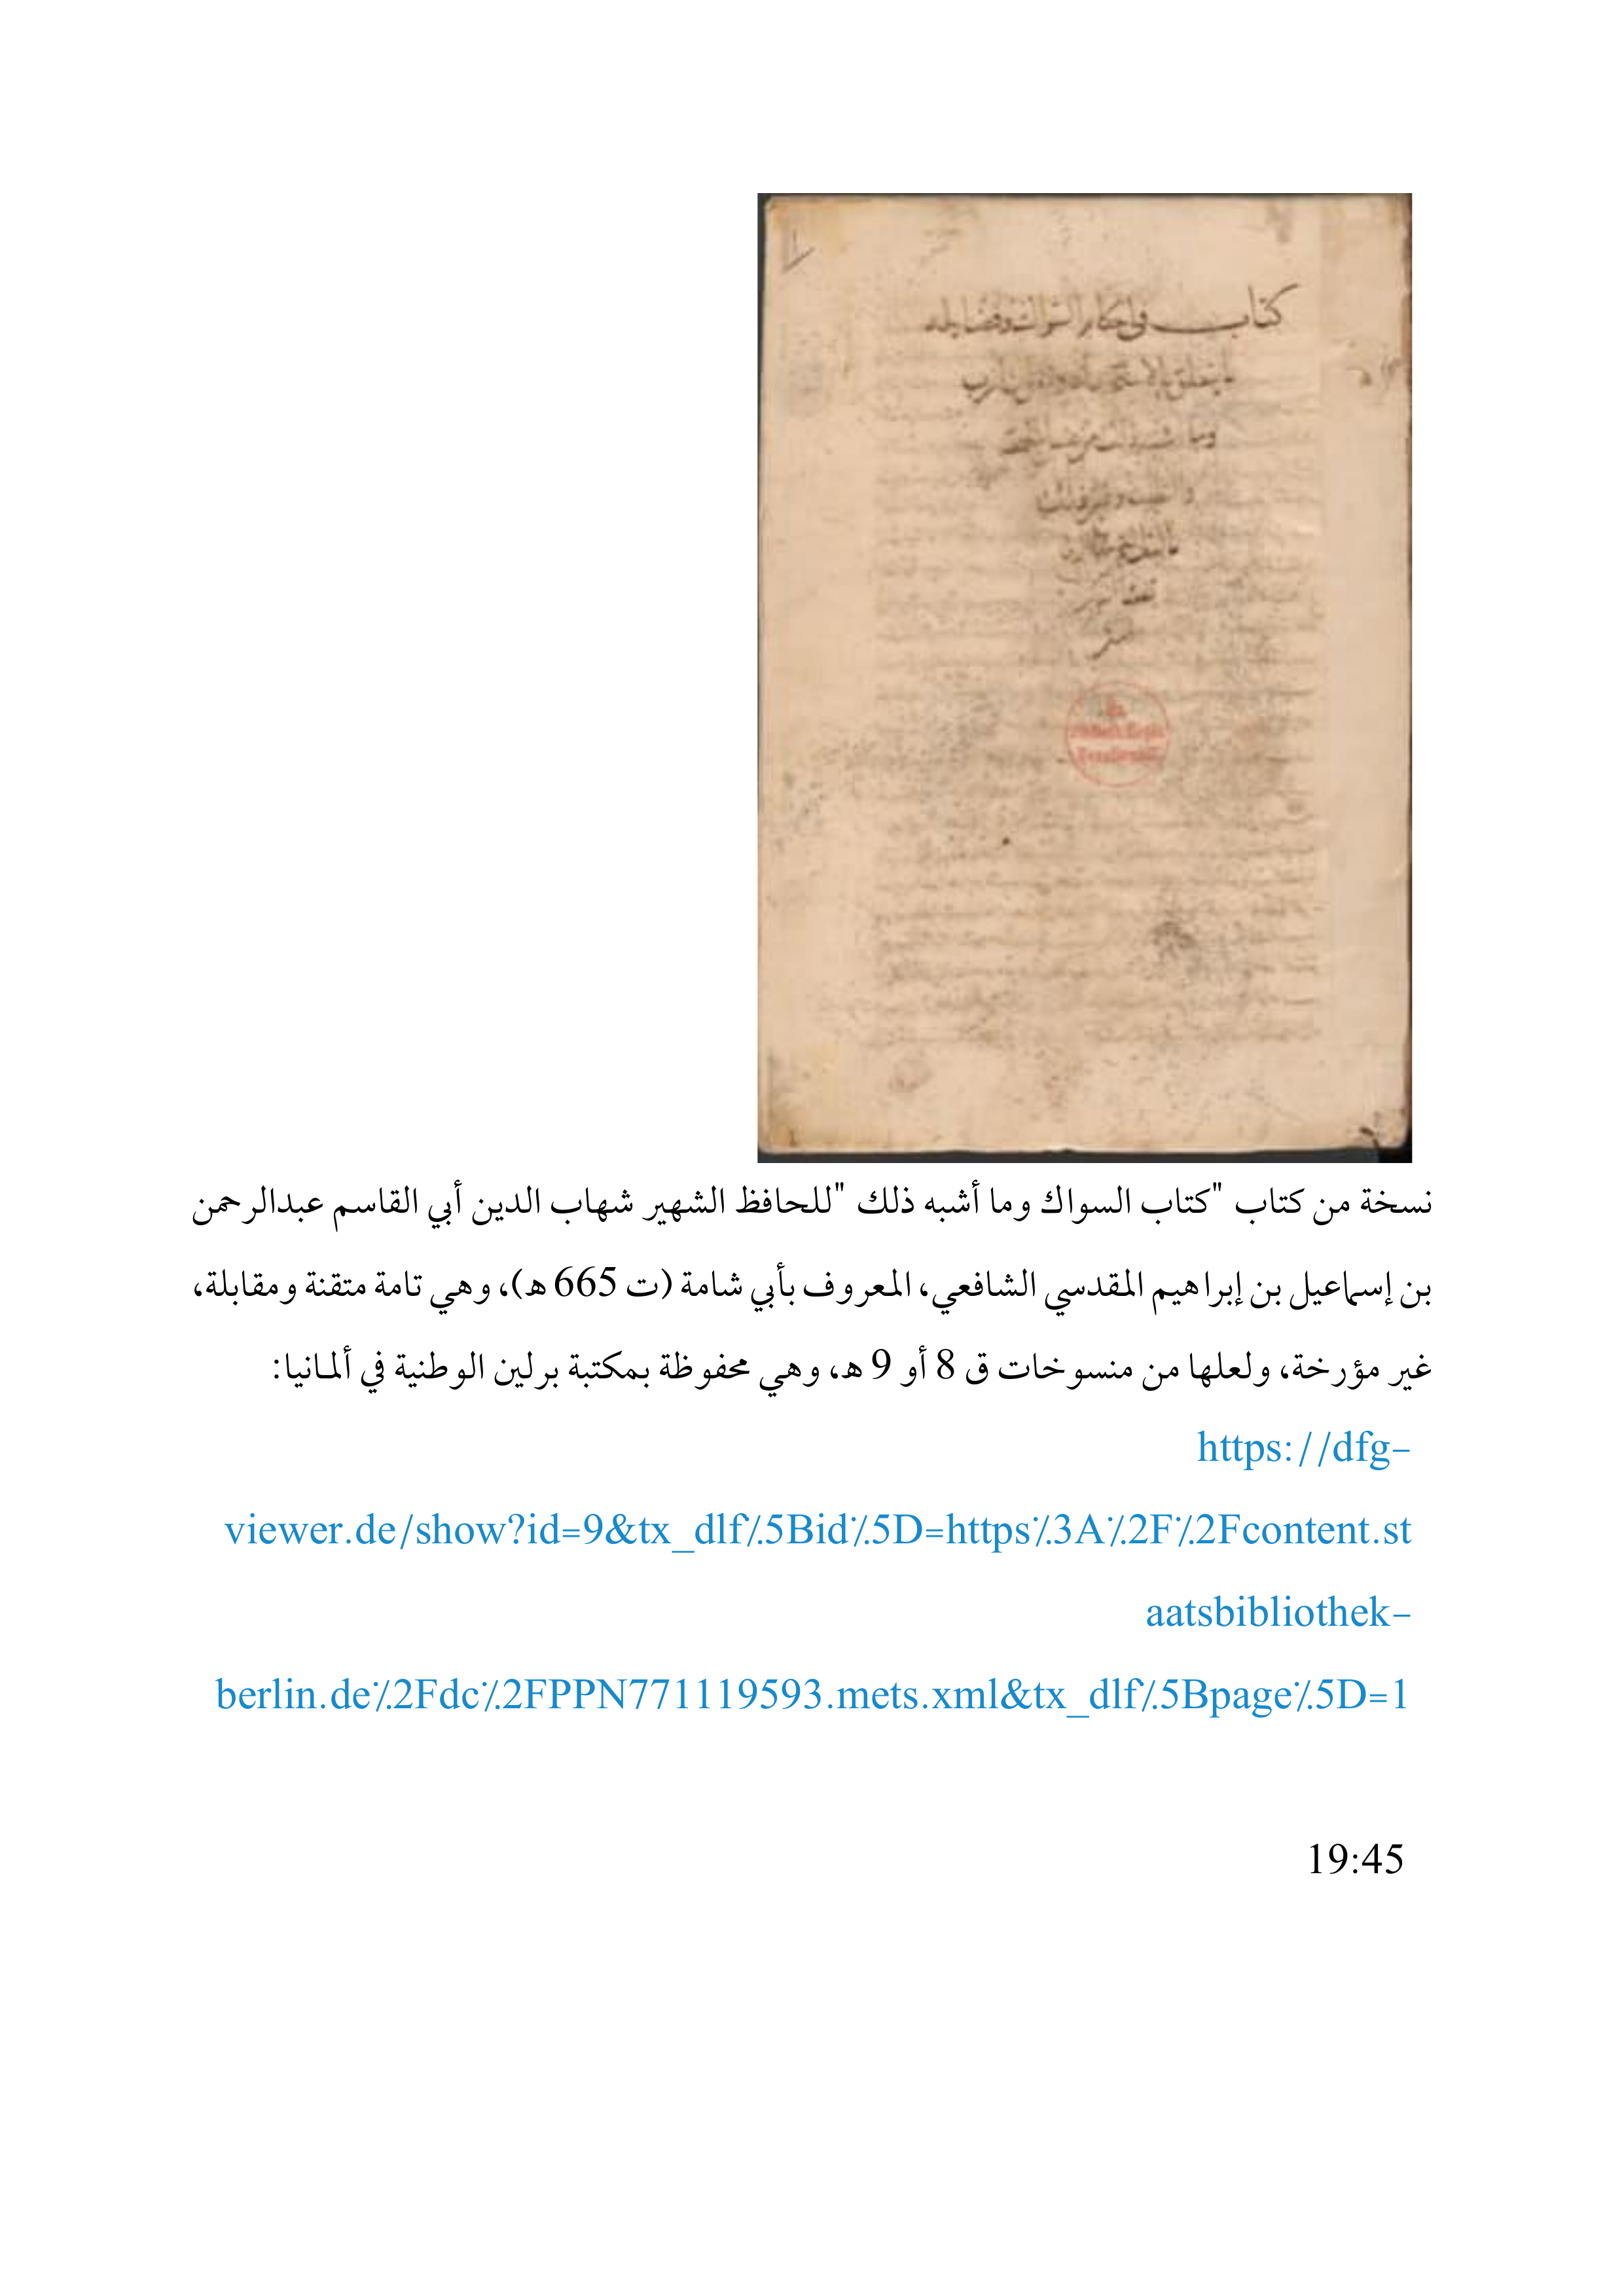 كتاب في احكام السواك وفضايله
نسخة من كتاب "كتاب السواك وما أشبه ذلك "للحافظ الشهير شهاب الدين أبي القاسم عبدالرحمن
بن إسماعيل بن إبراهيم المقدسي الشافعي، المعروف بأبي شامة (ت 665 ه)، وهي تامة متقنة ومقابلة،
غير مؤرخة، ولعلها من منسوخات ق 8 أو 9 ه، وهي محفوظة بمكتبة برلين الوطنية في ألمانيا:
https://dfg-
viewer.de/show?id=9&tx_dlf%5Bid%5D=https%3A%2F%2Fcontent.st
aatsbibliothek-
berlin.de%2Fdc%2FPPN771119593.mets.xml&tx_dlf%5Bpage%5D=1
19:45